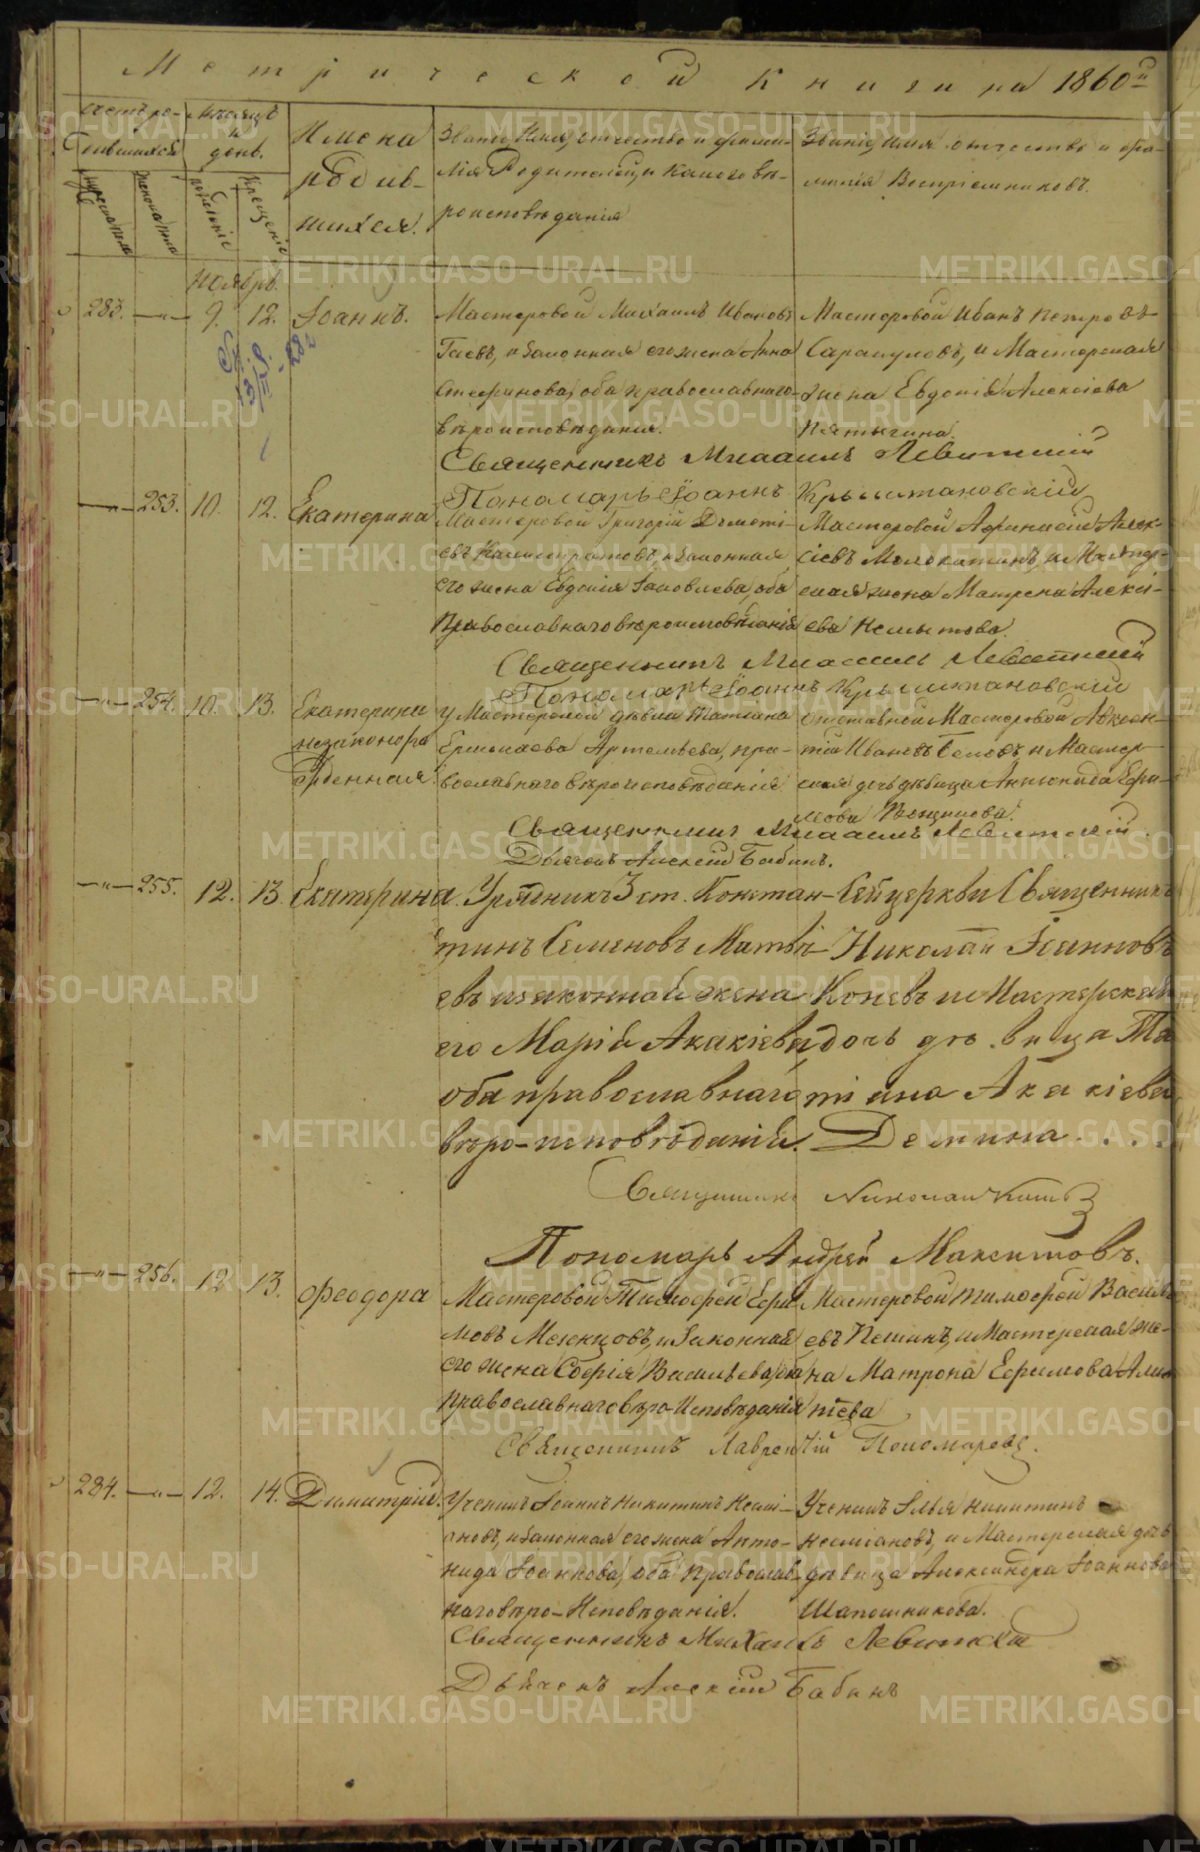 Метрической книги на 1860й
Счетъ ро-
дившихся
Мѣсяцъ
и
день.
Имена
родив-
шихся.
Званіе, имя, отчество и фами-
лія Родителей, и какого вѣ-
роисповѣданія
Званіе, имя отчество и фа-
милія Воспріемниковъ.
мужеска пола
женска пола
рожденіе
крещеніе
Ноябрь.
283. —"— 9. 12. Іоаннъ.
Мастеровой Михаилъ Ивановъ
Гаевъ, и законная его жена Анна
Стефанова, оба православнаго
вѣроисповѣданія.
Мастеровой Иванъ Петровъ
Сарапуловъ, и Мастерская
жена Евдокія Алексіева
Пятыгина.
Священникъ Михаилъ Левитскій
Пономарь Іоаннъ Крыштановскій
—"— 253. 10. 12. Екатерина
Мастеровой Григорій
его жена Евдокія Іаковлева, оба
Православнаго вѣроисповѣданія
Мастеровой Афанасій Алек-
сіевъ и Мастер-
ская жена Матрена Алексі-
ева
Священникъ Михаилъ Левитскій
Пономарь Іоаннъ Крыштановскій
—"— 254. 10. 13. Екатерина
незаконоро
жденная
У Мастерской дѣвки Татіана
Ермолаева Артемьева, пра-
вославнаго вѣроисповѣданія
отставной Мастеровой Авксен-
тій Ивановъ Бековъ и Мастер-
ская дочь дѣвица Антонида Ефи-
мова
Священникъ Михаилъ Левитскій
Дьяконъ Алексій Бабинъ.
—"— 255. 12. 13. Екатерина.
Урядникъ 3 ст. Констан-
тинъ Семеновъ Матвѣ-
евъ и законная жена
его Марія Акакіева
оба православнаго
вѣро-исповѣданія.
Сей церкви Священникъ
Николай Іоанновъ
Коневъ и Мастерская
дочь дѣвица Та
тіана Акакіева
Демина . . . .
Священникъ Николай Коневъ
Пономарь Андрей Максимовъ.
—"— 256. 12 13. Феодора
Мастеровой Тимофей Ефи
мовъ и законная
его жена Софія Васильева, оба
православнаго вѣро-исповѣданія
Мастеровой Тимофей Василь
евъ и Мастерская же-
на Матрона Ефимова
Священникъ Лаврентій Пономаревъ.
284. —"— 12. 14. Димитрій.
Ученикъ Іоаннъ Никитинъ
и законная его жена Анто-
нида Іоаннова, оба Православ
наго вѣро-исповѣданія.
Ученикъ Илья Никитинъ
и Мастерская дочь
дѣвица Александра Іоаннова
Шапошникова.
Священникъ Михаилъ Левитскій
Дьяконъ Алексій Бабинъ
METRIKI.GASO-URAL.RU